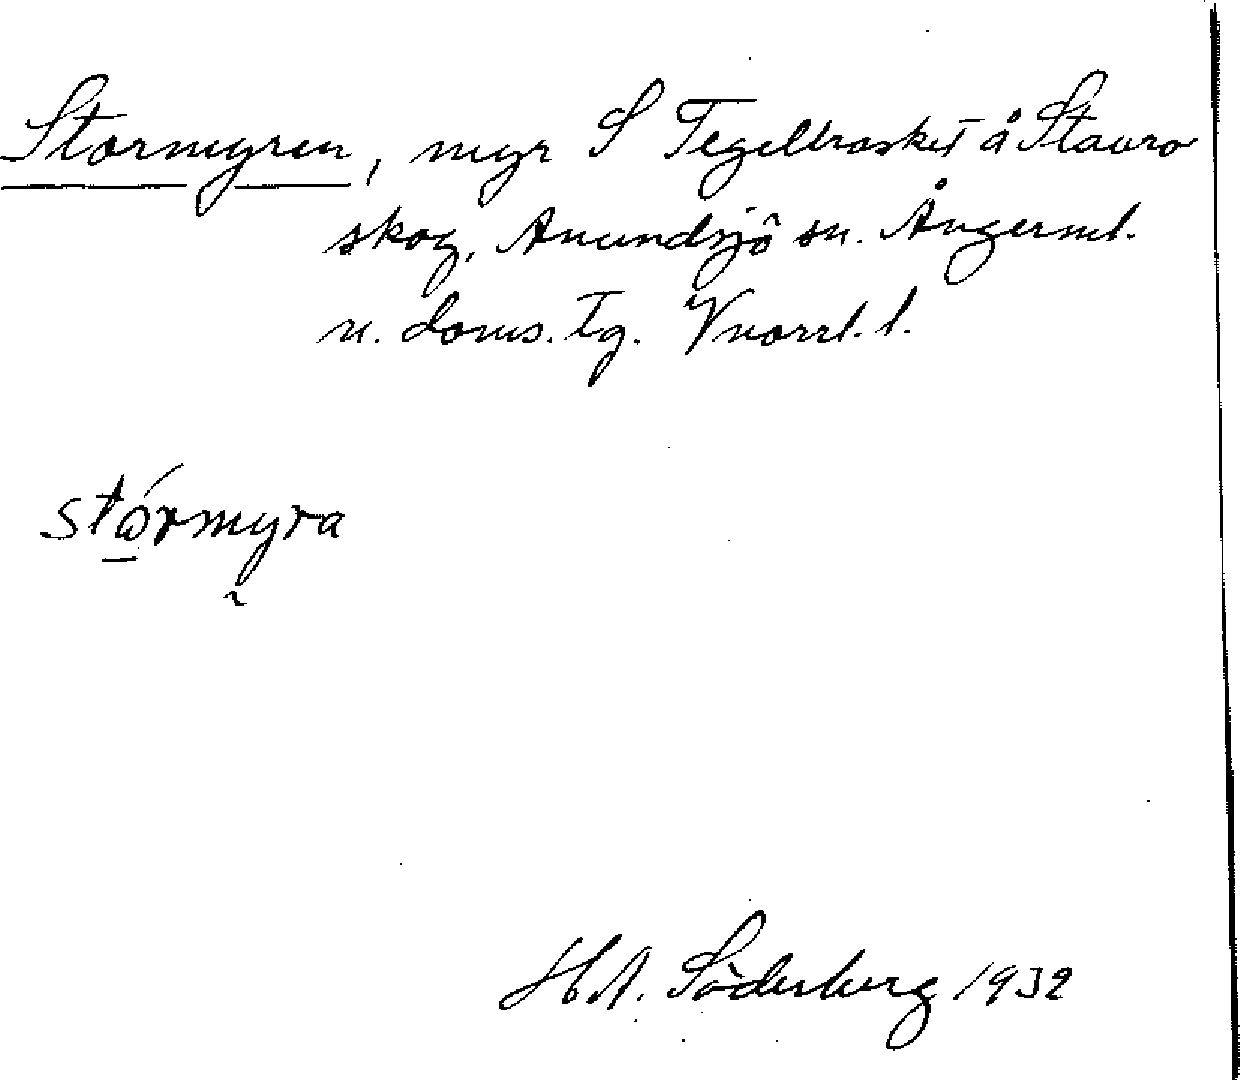 Stormyren, myr S Tegelträsket å Stavro
skog, Anundsjö sn. Ångerml.
n. doms. tg. Vnorrl. l.
stórmyra
H.A. Söderberg 1932